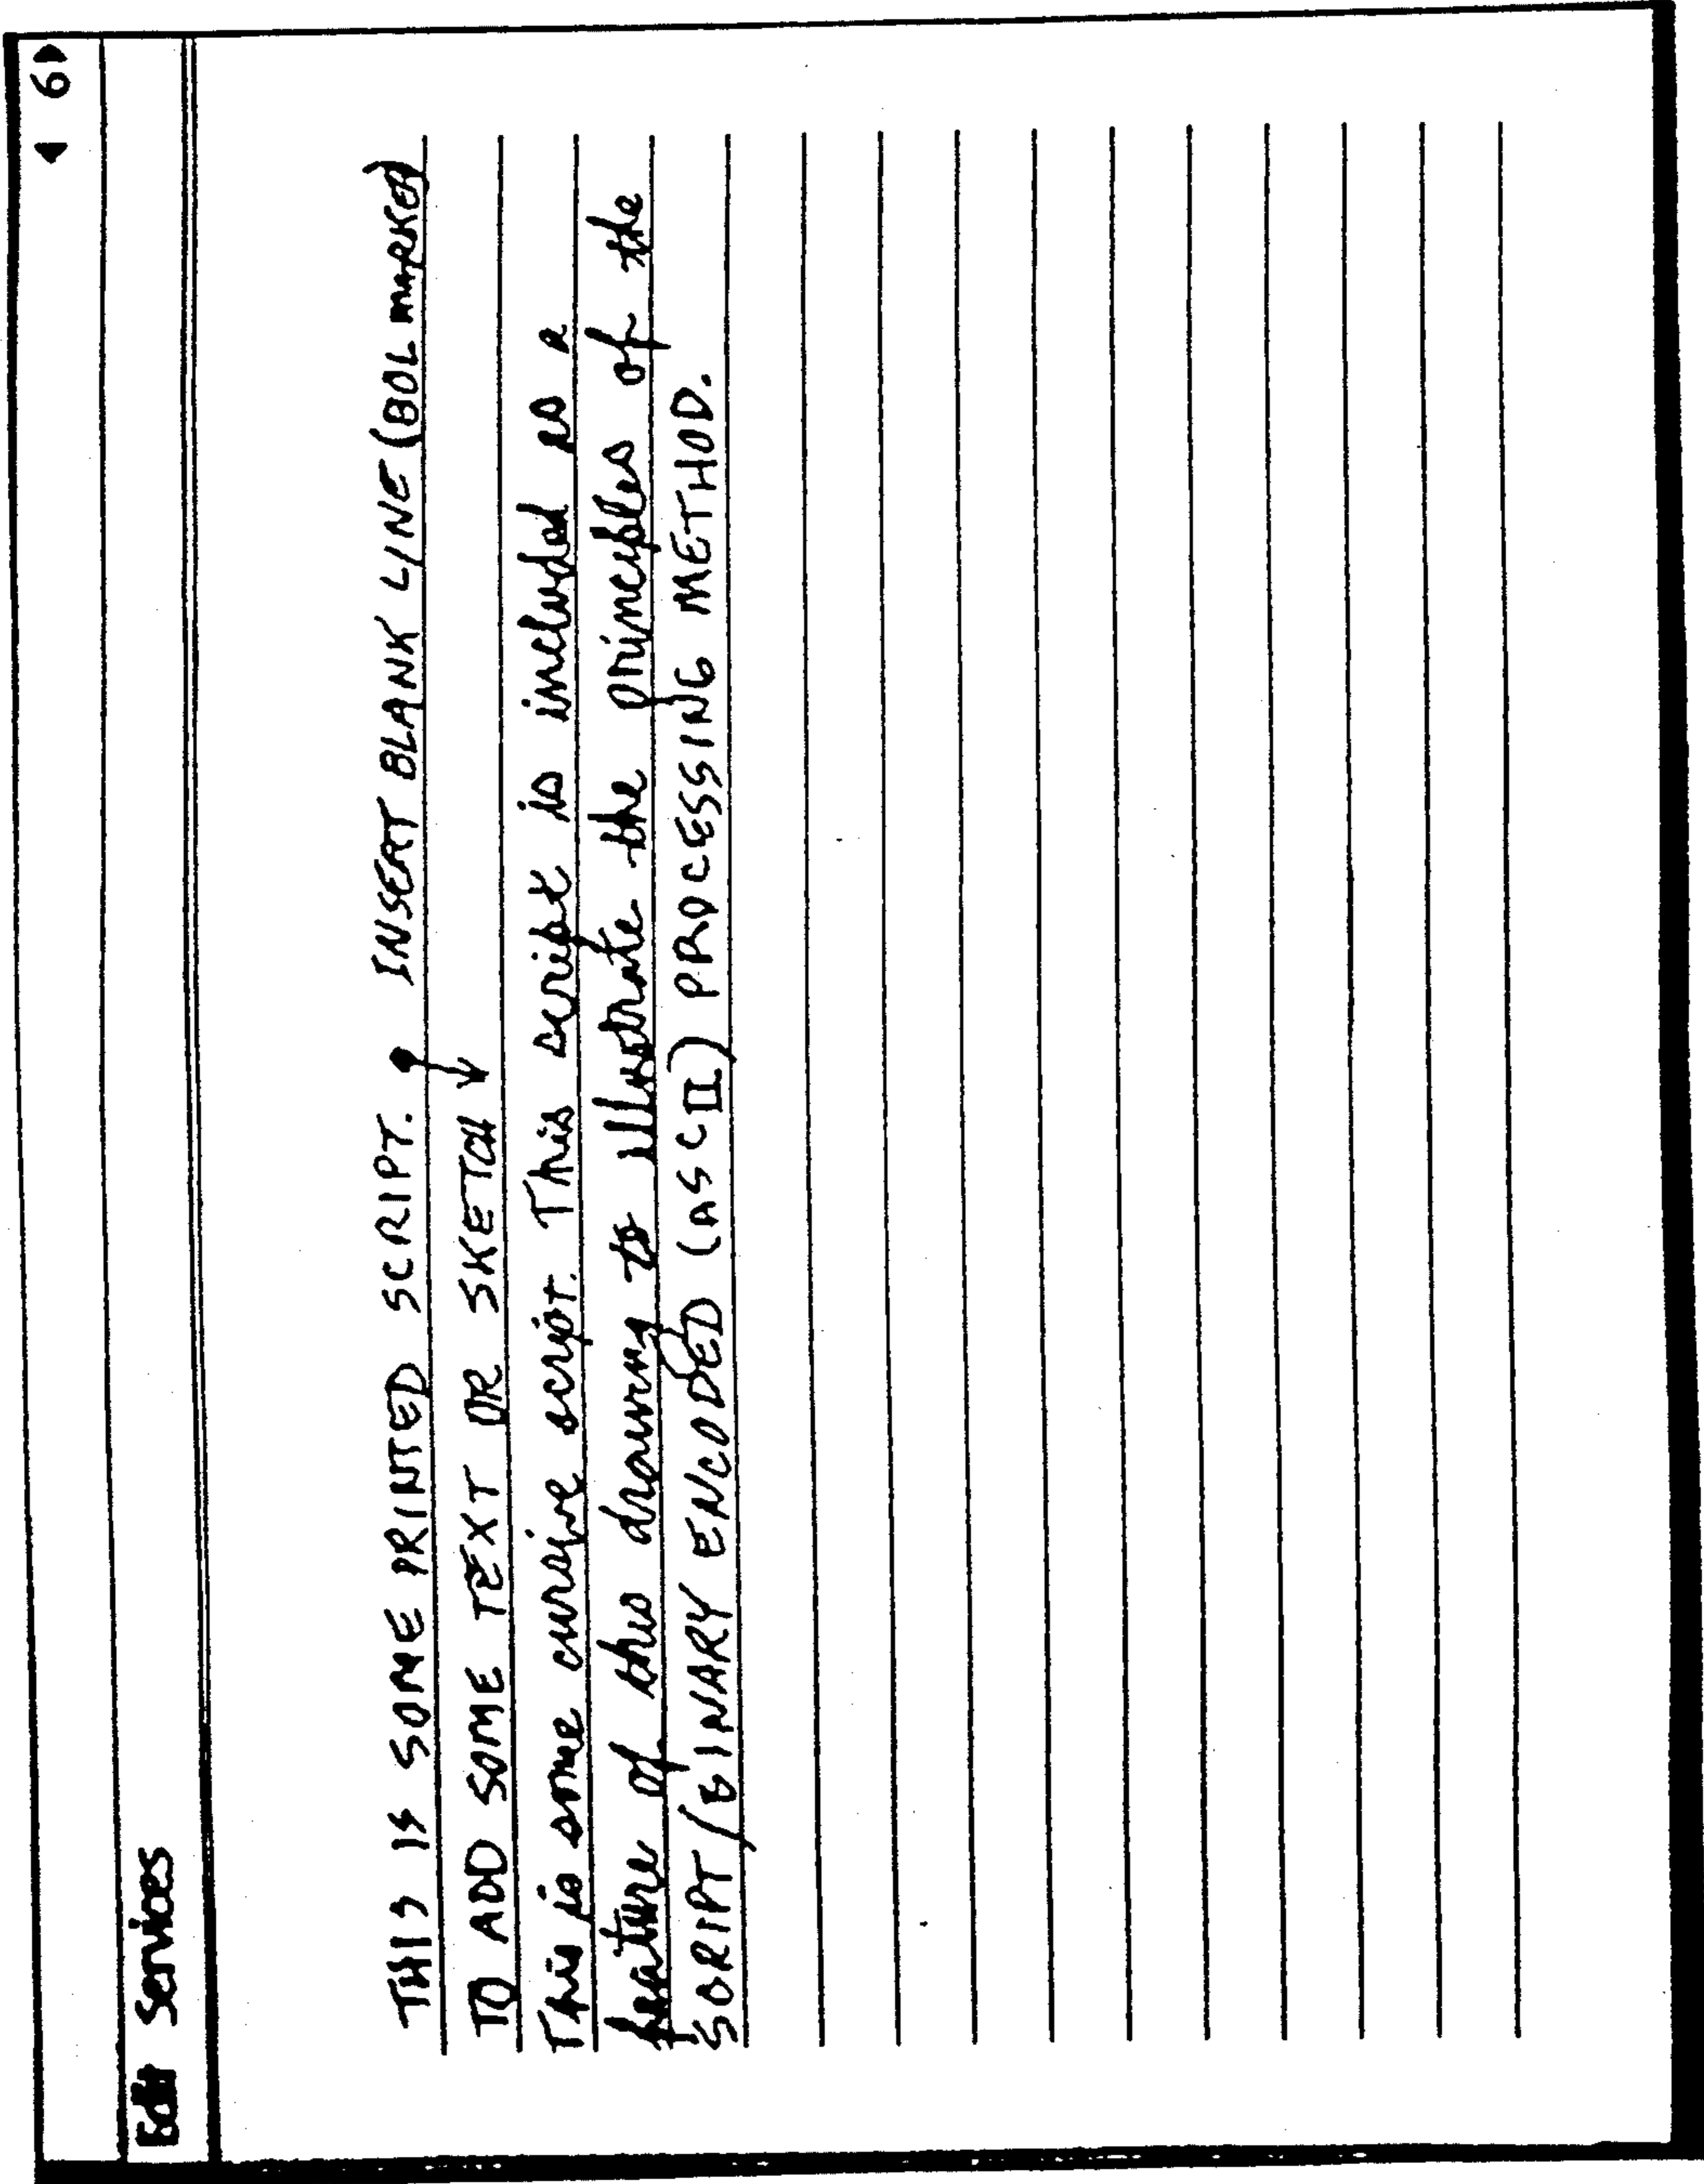 ◀ 6 ▶
Edit Services
THIS IS SOME PRINTED SCRIPT. INSERT BLANK LINE (BOL MARKER)
TO ADD SOME TEXT OR SKETCH
This is some cursive script. This script is included as a
feature of this drawing to illustrate the principles of the
SCRIPT/BINARY ENCODED (ASCII) PROCESSING METHOD.